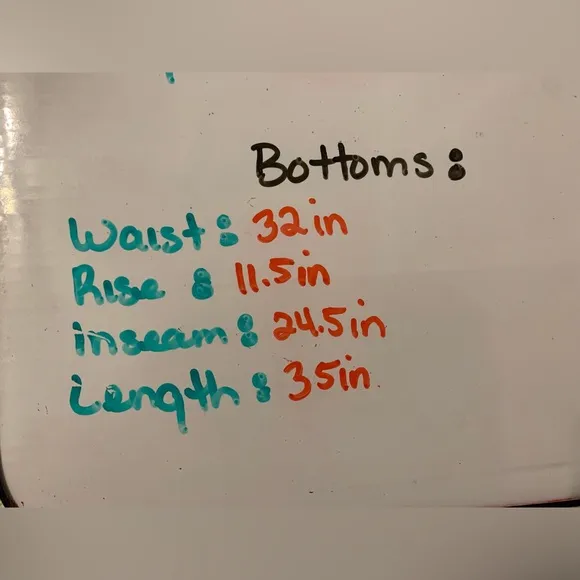 Bottoms:
Waist: 32in
Rise: 11.5in
inseam: 24.5in
Length: 35in